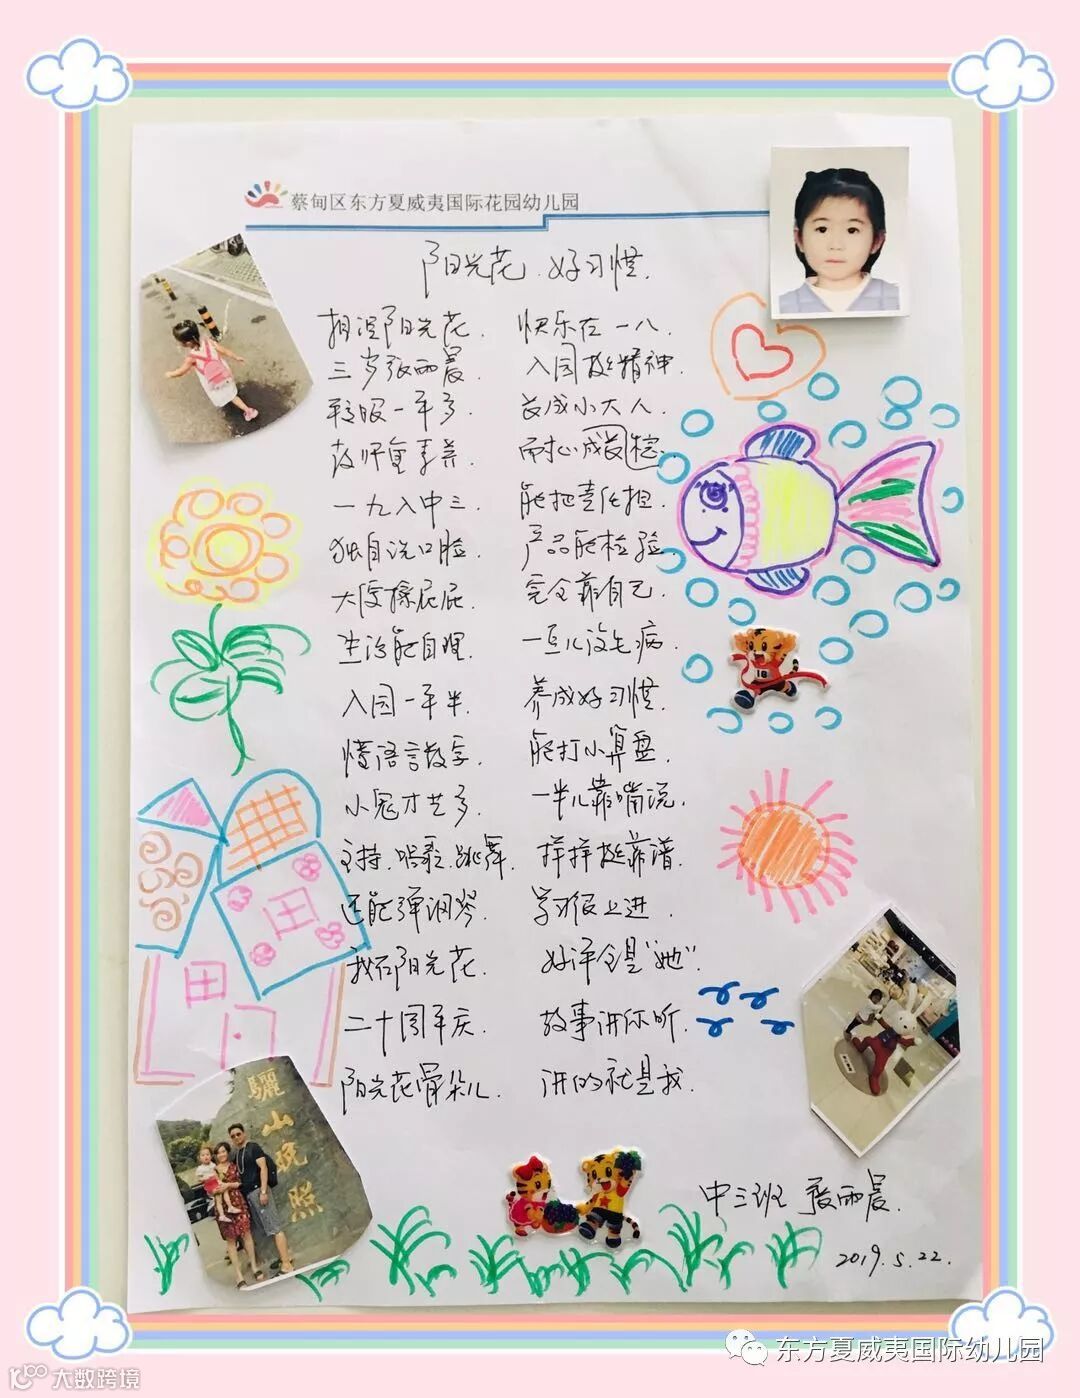 蔡甸区东方夏威夷国际花园幼儿园
阳光花、好习惯.
相识阳光花. 快乐在一八.
三岁张雨晨. 入园挺精神.
转眼一年多. 长成小大人.
教师重素养. 耐心成长棕.
一九入中三. 能把责任担.
独自洗口脸. 产品能检验.
大便擦屁屁. 完全靠自己.
生活能自理. 一点儿没毛病.
入园一年半. 养成好习惯.
懂语言数字. 能打小算盘.
小鬼才艺多. 一半儿靠嘴说.
主持.唱歌.跳舞. 样样挺靠谱.
还能弹钢琴. 学习很上进.
我在阳光花. 好评全是“她”.
二十周年庆. 故事讲你听.
阳光花骨朵儿. 讲的就是我.
16
骊山晚照
中三班 张雨晨.
2019.5.22.
东方夏威夷国际幼儿园
大数跨境